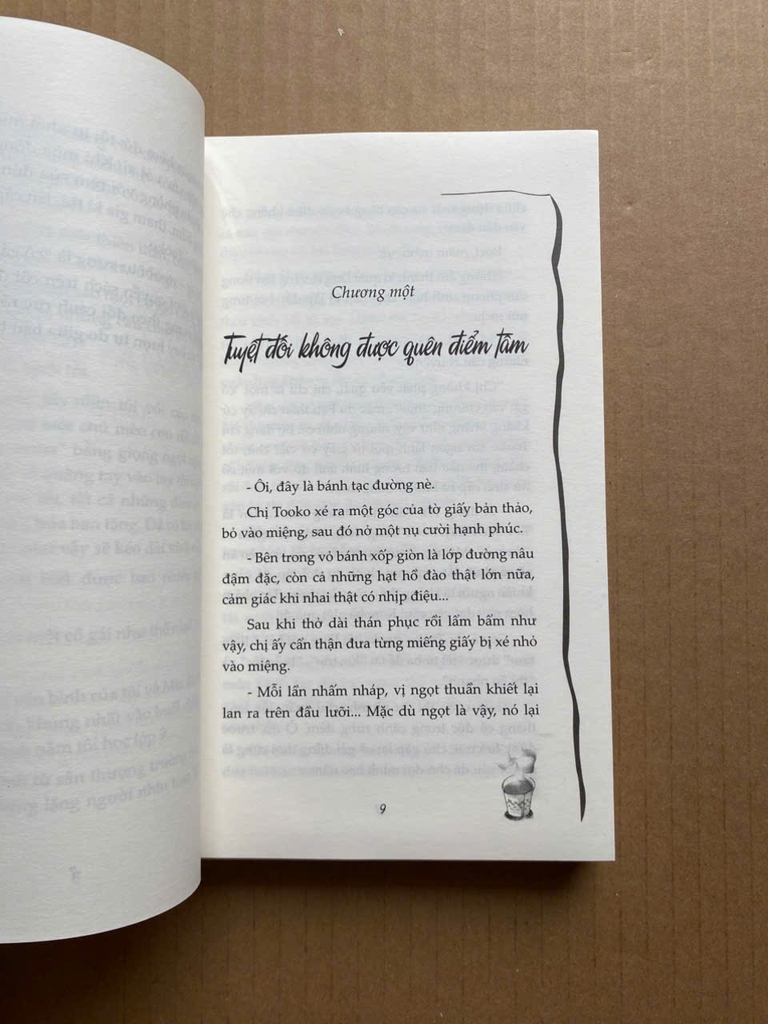 Chương một
Tuyệt đối không được quên điểm tâm
- Ôi, đây là bánh tạc đường nè.
Chị Tooko xé ra một góc của tờ giấy bản thảo,
bỏ vào miệng, sau đó nở một nụ cười hạnh phúc.
- Bên trong vỏ bánh xốp giòn là lớp đường nâu
đậm đặc, còn cả những hạt hồ đào thật lớn nữa,
cảm giác khi nhai thật có nhịp điệu...
Sau khi thở dài thán phục rồi lẩm bẩm như
vậy, chị ấy cẩn thận đưa từng miếng giấy bị xé nhỏ
vào miệng.
- Mỗi lần nhấm nháp, vị ngọt thuần khiết lại
lan ra trên đầu lưỡi... Mặc dù ngọt là vậy, nó lại
9